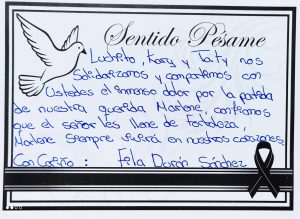 Sentido Pésame
Luchito, Kary y Taty nos
Solidarizamos y compartimos con
Ustedes el inmenso dolor por la partida
de nuestra querida Marlene, confiamos
que el señor les llene de Fortaleza,
Marlene Siempre vivirá en nuestros corazones.
Con Cariño : Fila Durán Sánchez